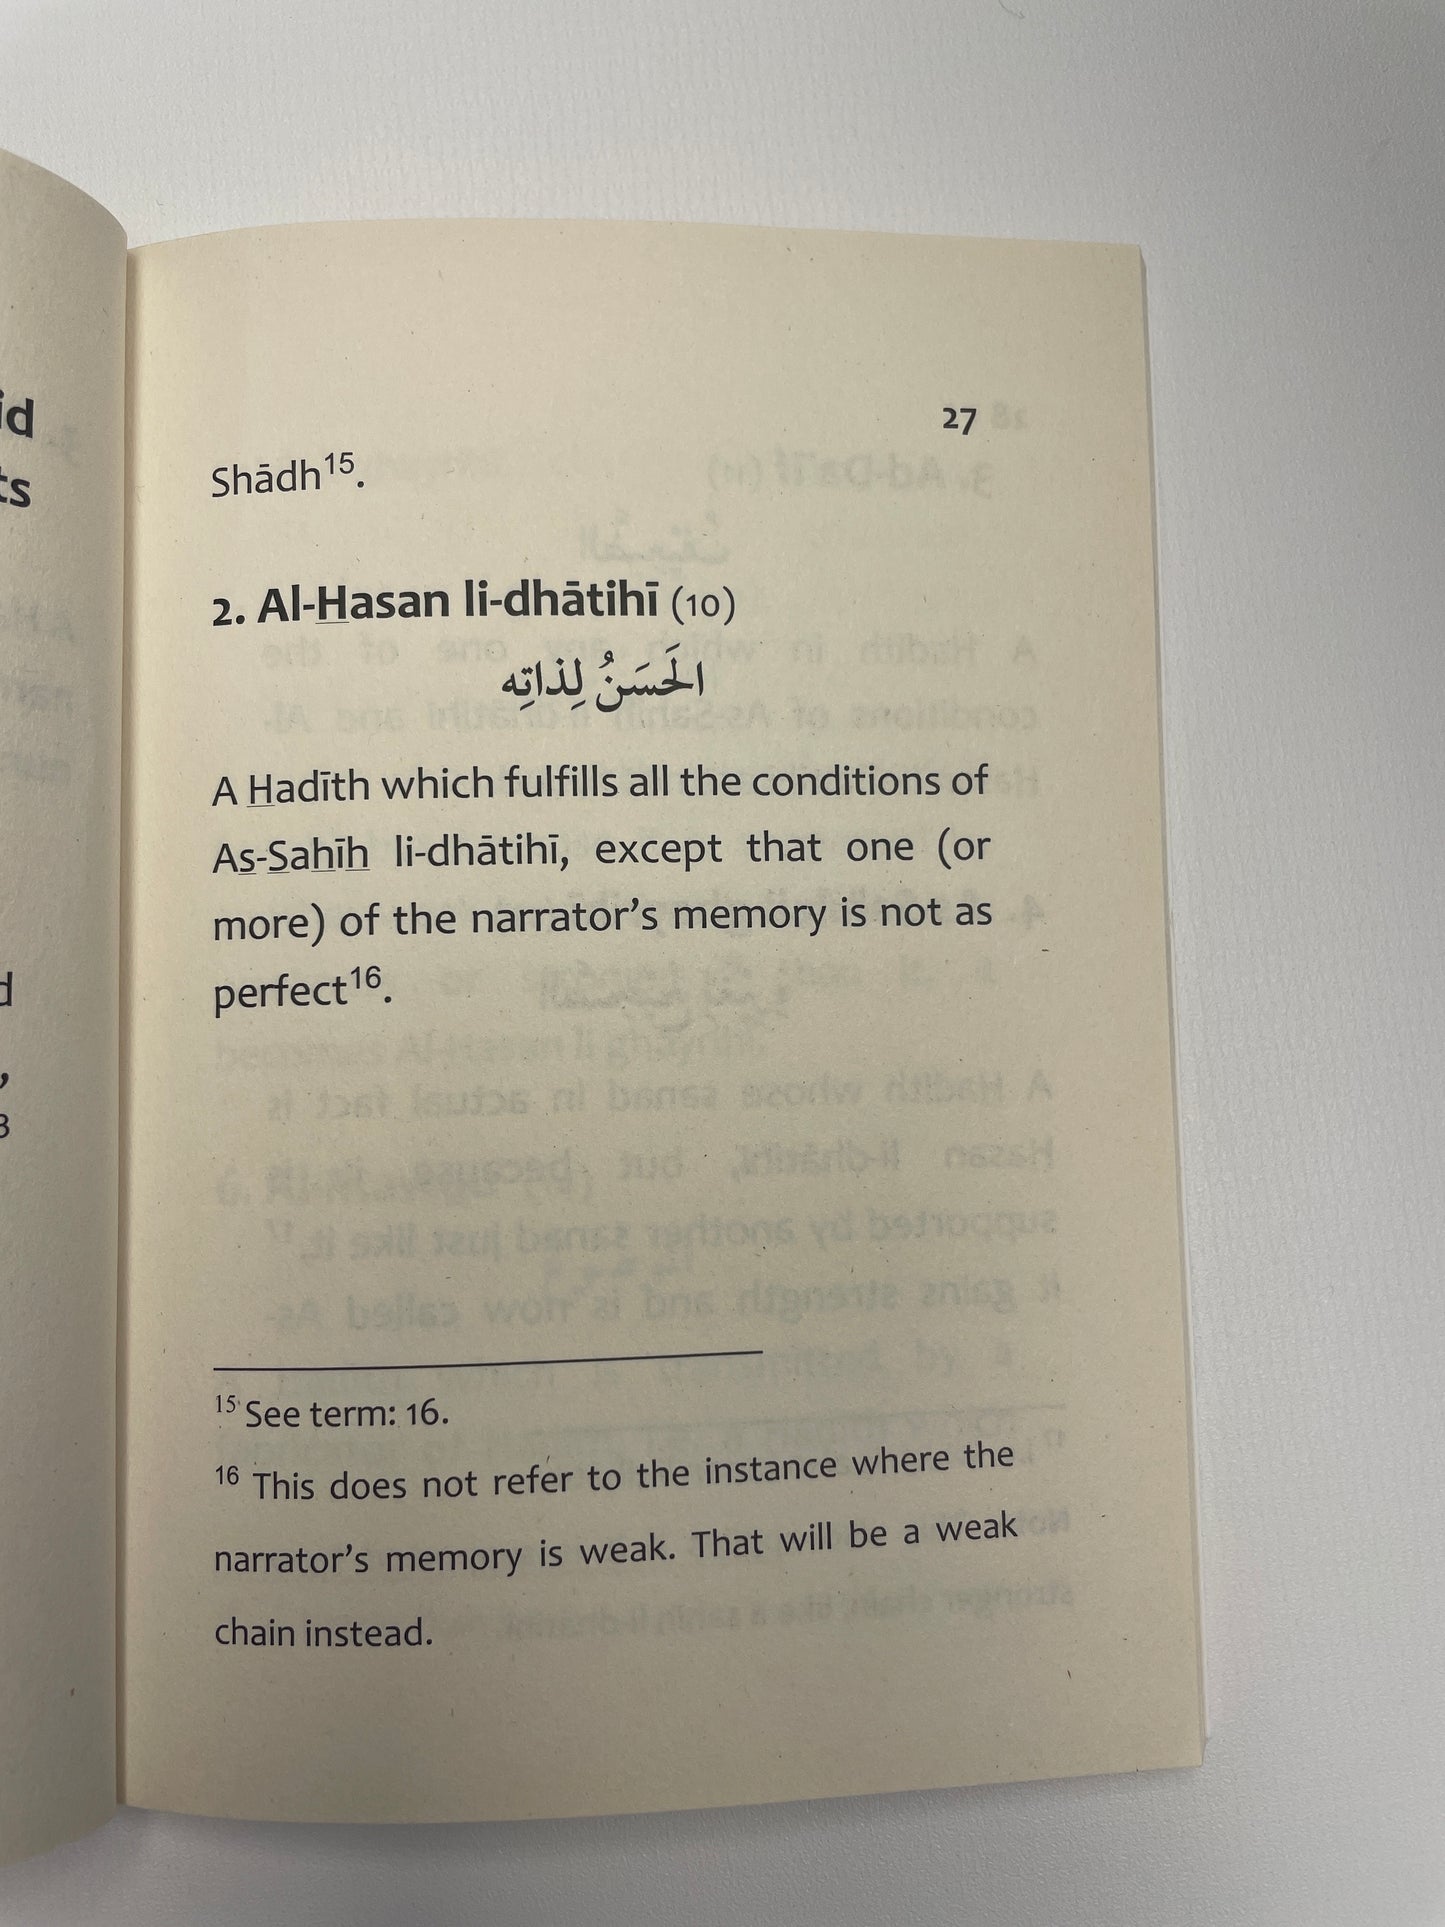 27
Shādh¹⁵.
2. Al-H̱asan li-dhātihī (10)
الحَسَنُ لِذاتِه
A H̱adīth which fulfills all the conditions of
As̱-S̱aẖīẖ li-dhātihī, except that one (or
more) of the narrator’s memory is not as
perfect¹⁶.
¹⁵ See term: 16.
¹⁶ This does not refer to the instance where the
narrator’s memory is weak. That will be a weak
chain instead.